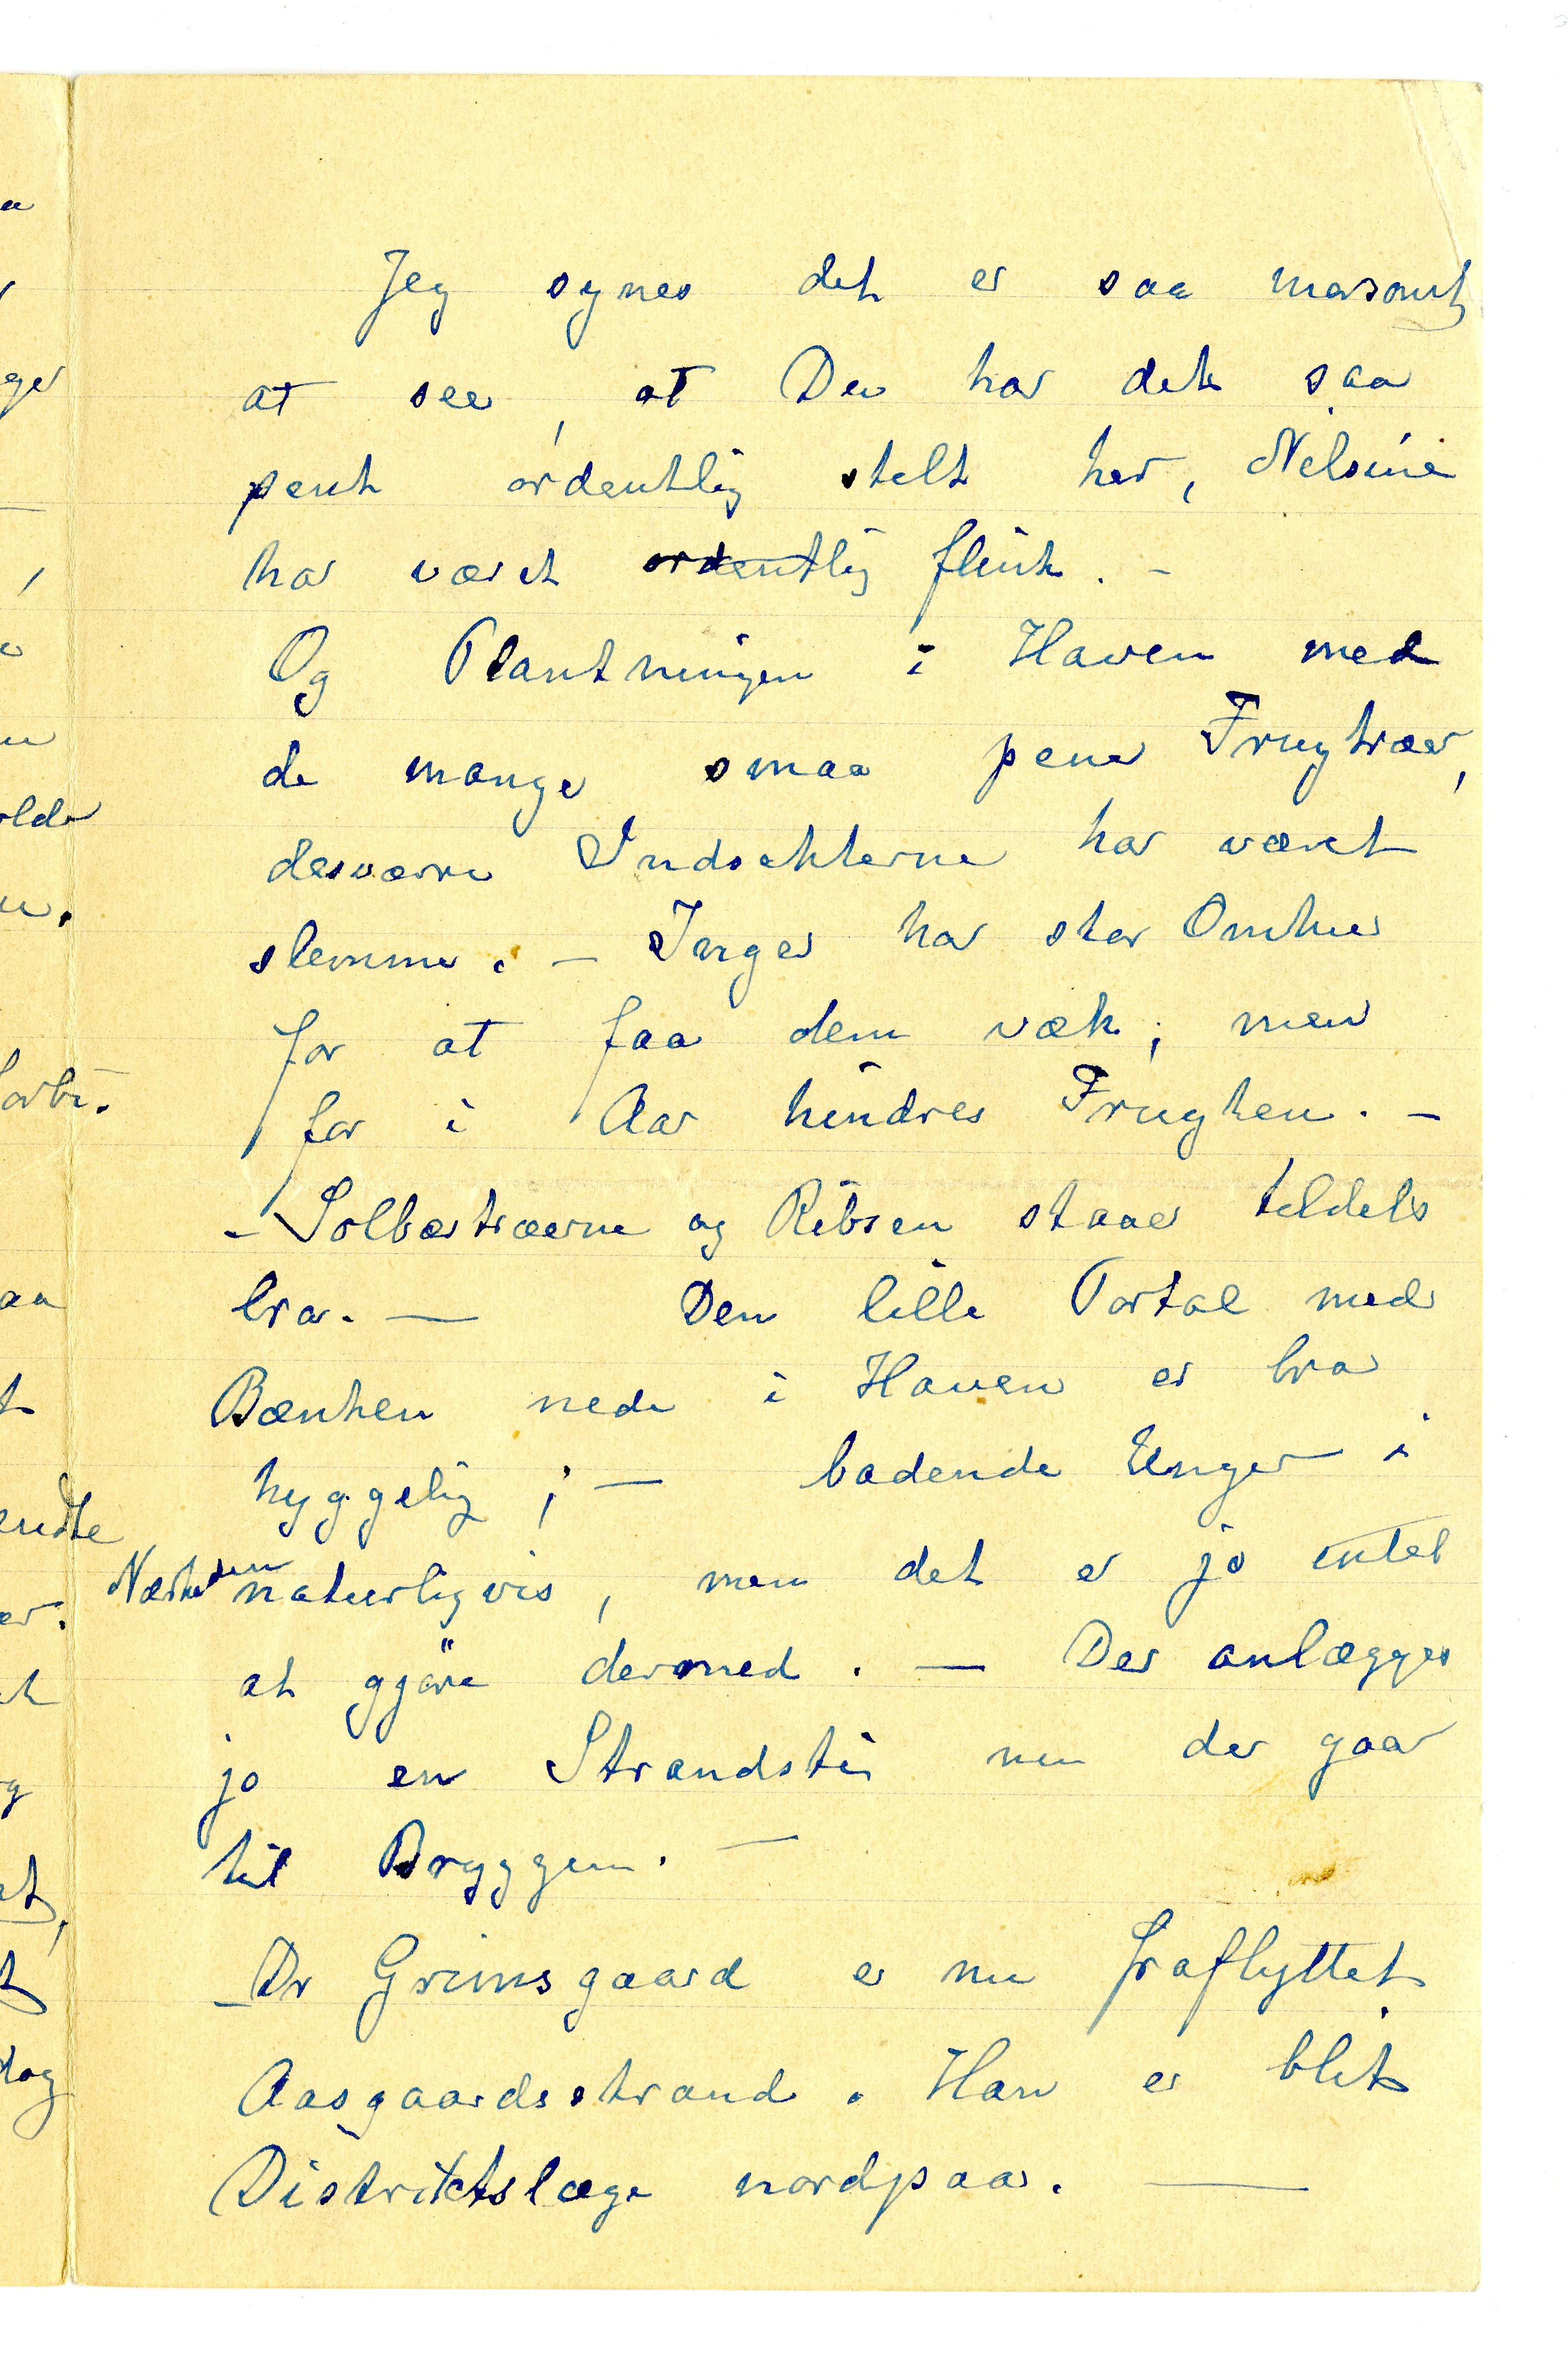 Jeg synes det er saa morsomt
at see, at Du har det saa
pent ordentlig stelt her, Nelsine
har været ordentlig flink. –
Og Plantningen i Haven med
de mange smaa pene Frugtræer,
desværre Indsekterne har været
slemme. – Inger har stor Omhu
for at faa dem væk; men
for i Aar hindres Frugten. –
– Solbærtræerne og Ribsen staaer tildels
bra. — Den lille Portal med
Bænken nede i Haven er bra
hyggelig; — badende Unger i
Nærheden naturligvis, men det er jo intet
at gjöre dermed. — Der anlægges
jo en Strandsti nu der gaar
til Bryggen. —
– Dr Grimsgaard er nu fraflyttet
Aasgaardsstrand. Han er blit
Distriktslæge nordpaa. —